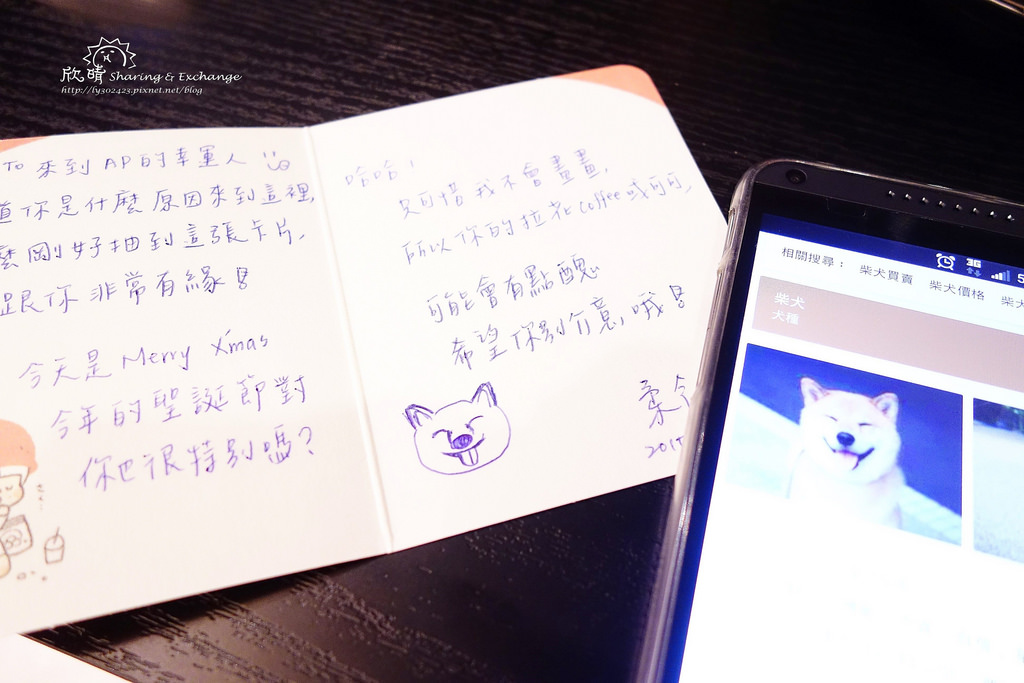 欣晴 Sharing & Exchange
http://ly302423.pixnet.net/blog
To 來到 AP的幸運人
道你是什麼原因來到這裡,
麼剛好抽到這張卡片,
跟你非常有緣!
今天是 Merry X'mas
今年的聖誕節對
你也很特別嗎?
哈哈!
只可惜我不會畫畫,
所以你的拉花coffee或可可,
可能會有點醜
希望你別介意哦!
柔今
201
相關搜尋: 柴犬買賣 柴犬價格 柴犬
柴犬
犬種
3G
5